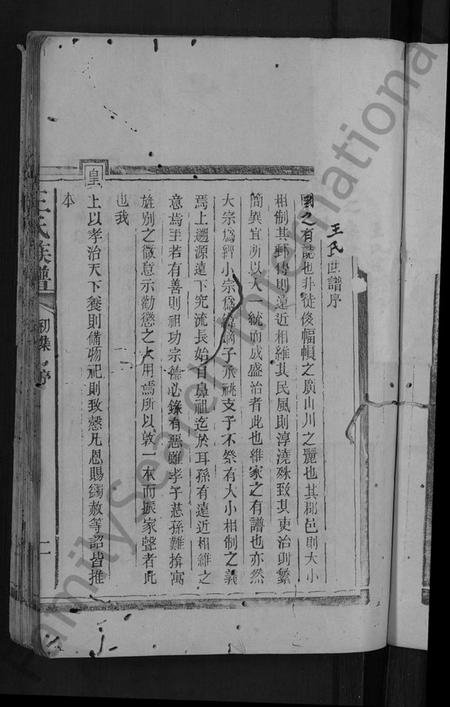 王氏世譜序
國之有誌也非徒侈幅幀之廣山川之麗也其郡邑則大小
相制其轉傳則遠近相維其民風則淳澆殊致其吏治則繁
簡異宜所以大一統而成盛治者此也維家之有譜也亦然
大宗為經小宗為緯嫡子承祧支子不祭有大小相制之義
焉上遡源遠下究流長始自鼻祖迄於耳孫有遠近相維之
意焉至若有善則祖功宗德必錄有惡雖孝子慈孫難揜寓
旌別之微意示勸懲之大用焉所以敦一本而振家聲者此
也我
皇
上以孝治天下養則備物祀則致愨凡恩賜獨赦等詔皆推
本
王氏族譜
初集 序
二
FamilySearch International